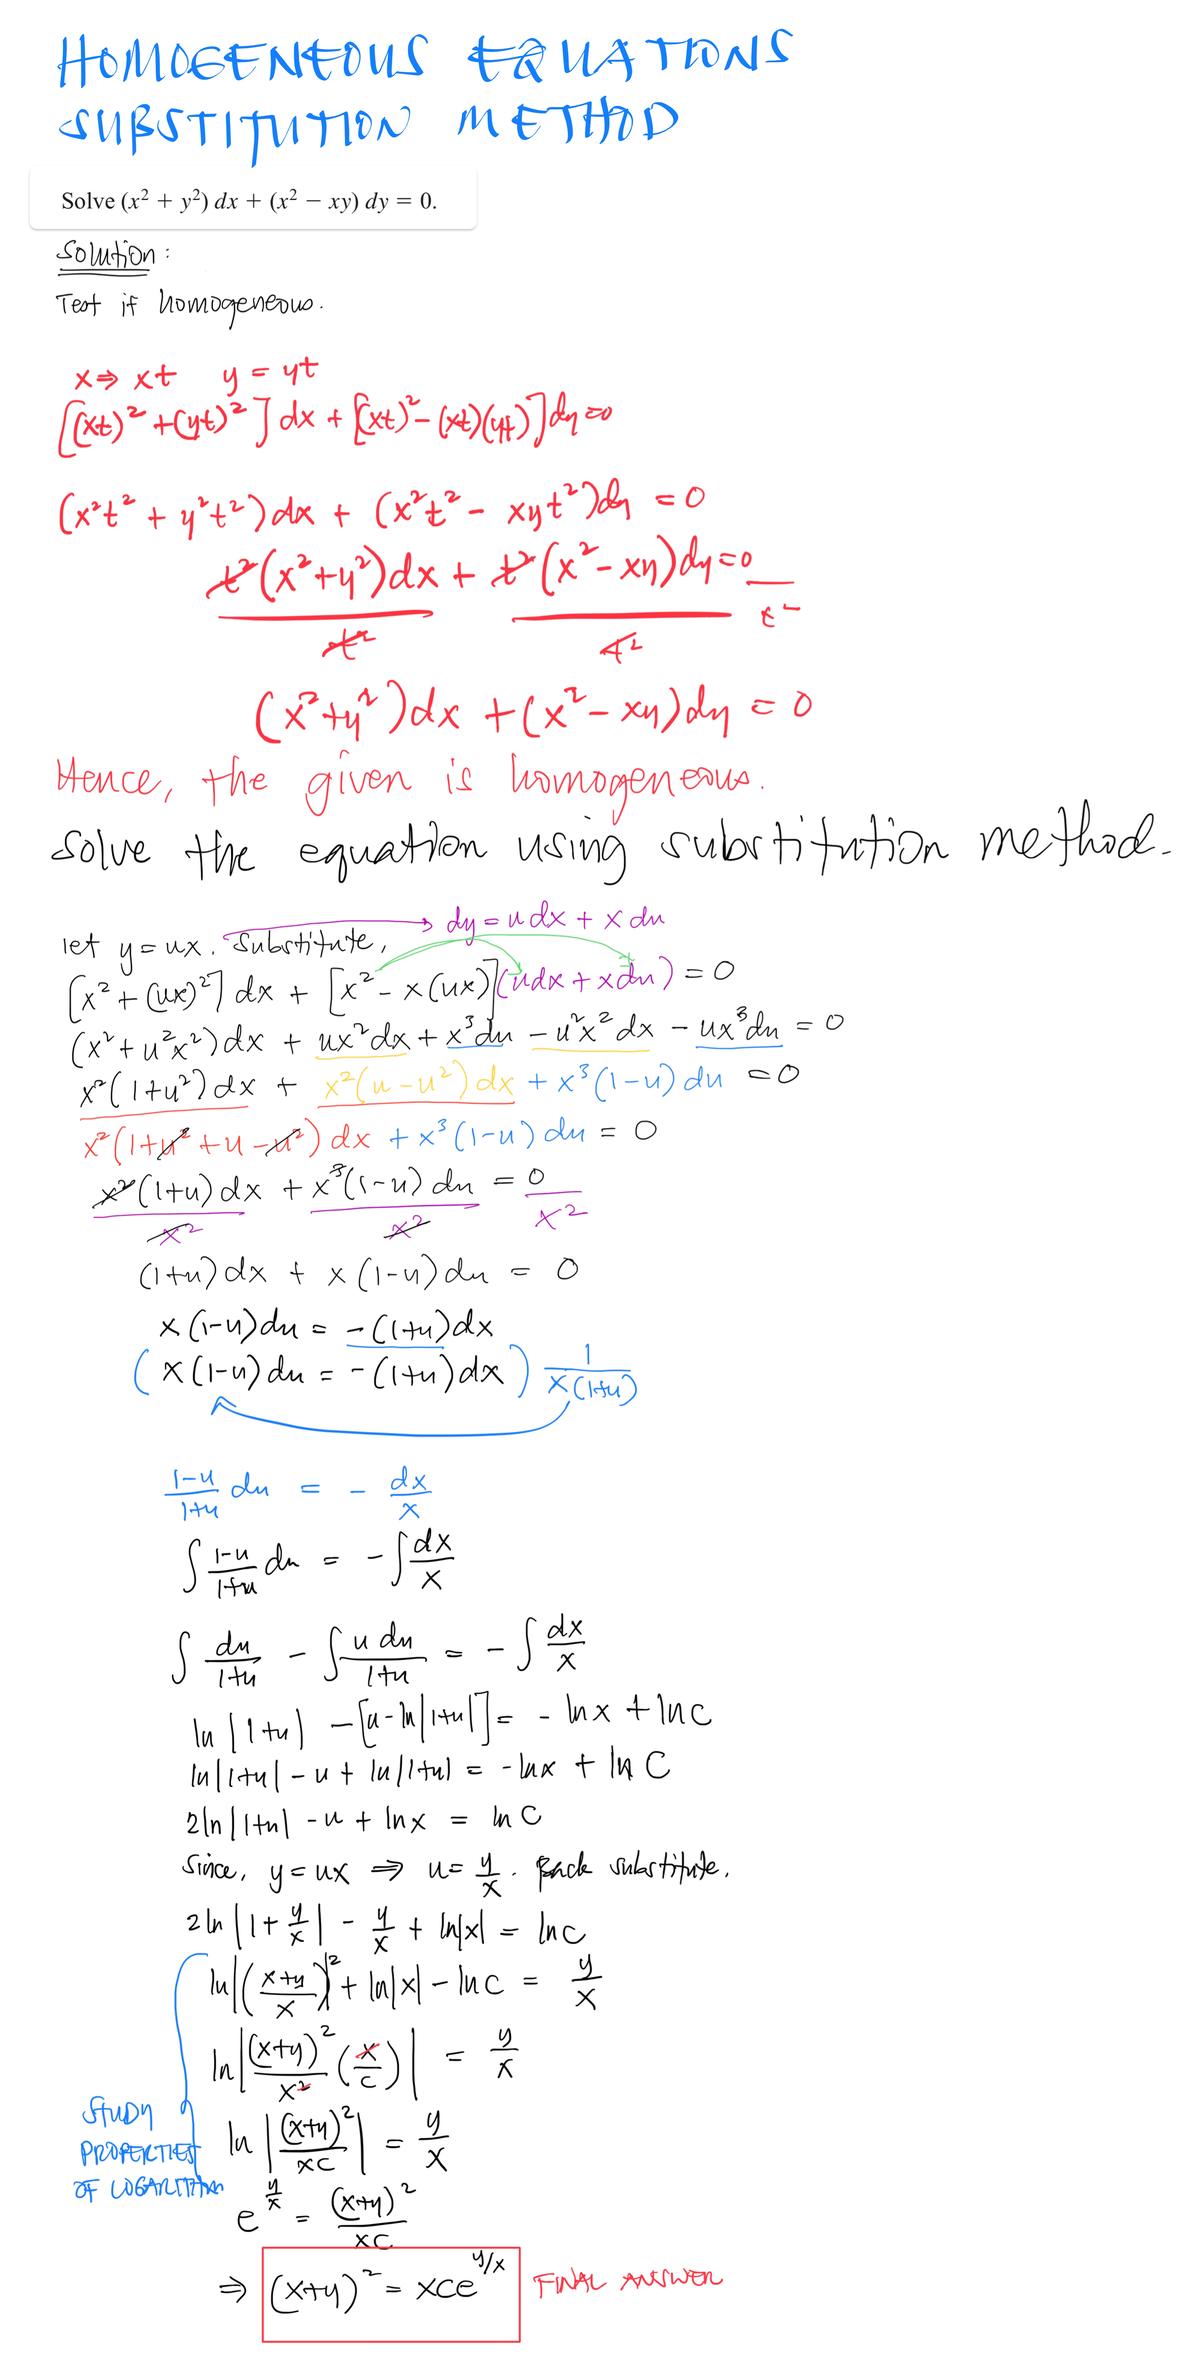 HOMOGENEOUS EQUATIONS
SUBSTITUTION METHOD
Solve (x² + y²) dx + (x² − xy) dy = 0.
Solution:
Test if homogeneous.
x ⇒ xt y = yt
[(xt)² + (yt)²] dx + [(xt)² − (xt)(yt)] dy = 0
(x²t² + y²t²) dx + (x²t² − xyt²) dy = 0
t²(x² + y²) dx / t² + t²(x² − xy) dy / t² = 0 / t²
(x² + y²) dx + (x² − xy) dy = 0
Hence, the given is homogeneous.
Solve the equation using substitution method.
let y = ux. Substitute, → dy = u dx + x du
[x² + (ux)²] dx + [x² − x(ux)](udx + xdu) = 0
(x² + u²x²) dx + ux² dx + x³ du − u²x² dx − ux³ du = 0
x²(1 + u²) dx + x²(u − u²) dx + x³(1 − u) du = 0
x²(1 + u² + u − u²) dx + x³(1 − u) du = 0
x²(1 + u) dx / x² + x³(1 − u) du / x² = 0 / x²
(1 + u) dx + x(1 − u) du = 0
x(1 − u) du = −(1 + u) dx
(x(1 − u) du = −(1 + u) dx) 1 / x(1 + u)
(1 − u)/(1 + u) du = − dx/x
∫ (1 − u)/(1 + u) du = −∫ dx/x
∫ du/(1 + u) − ∫ u du/(1 + u) = −∫ dx/x
ln|1 + u| − [u − ln|1 + u|] = − ln x + ln C
ln|1 + u| − u + ln|1 + u| = − ln x + ln C
2 ln|1 + u| − u + ln x = ln C
Since, y = ux ⇒ u = y/x. Back substitute.
2 ln|1 + y/x| − y/x + ln|x| = ln C
ln|((x + y)/x)² + ln|x| − ln C = y/x
ln|(x + y)²/x² (x/C)| = y/x
ln|(x + y)²/xC| = y/x
STUDY
PROPERTIES
OF LOGARITHM
e^(y/x) = (x + y)²/xC
⇒ (x + y)² = xCe^(y/x) FINAL ANSWER